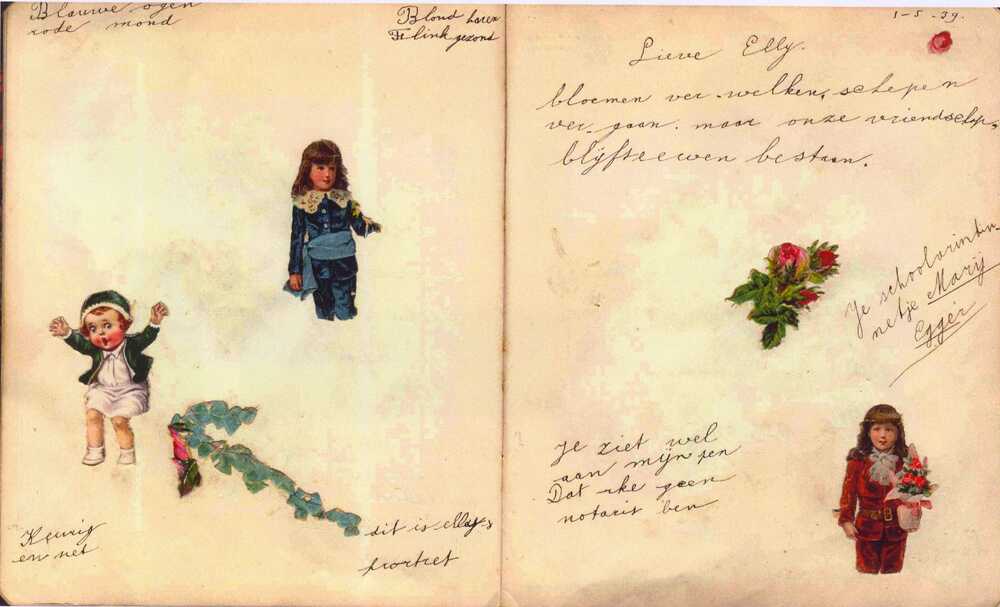 Blauwe ogen
rode mond
Blond haren
Flink gezond
Keurig
en net
dit is elly,s
portret
1-5-39.
Lieve Elly.
bloemen ver-welken, schepen
ver-gaan. maar onze vriendschap
blijft eewen bestaan.
Je schoolvriendin-
netje Marij
Egger
Je ziet wel
aan mijn pen
Dat ike geen
notaris ben